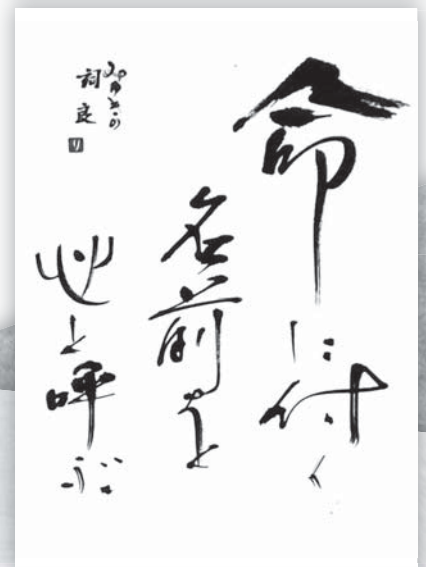 命に付く
名前を
心と呼ぶ
詞 良